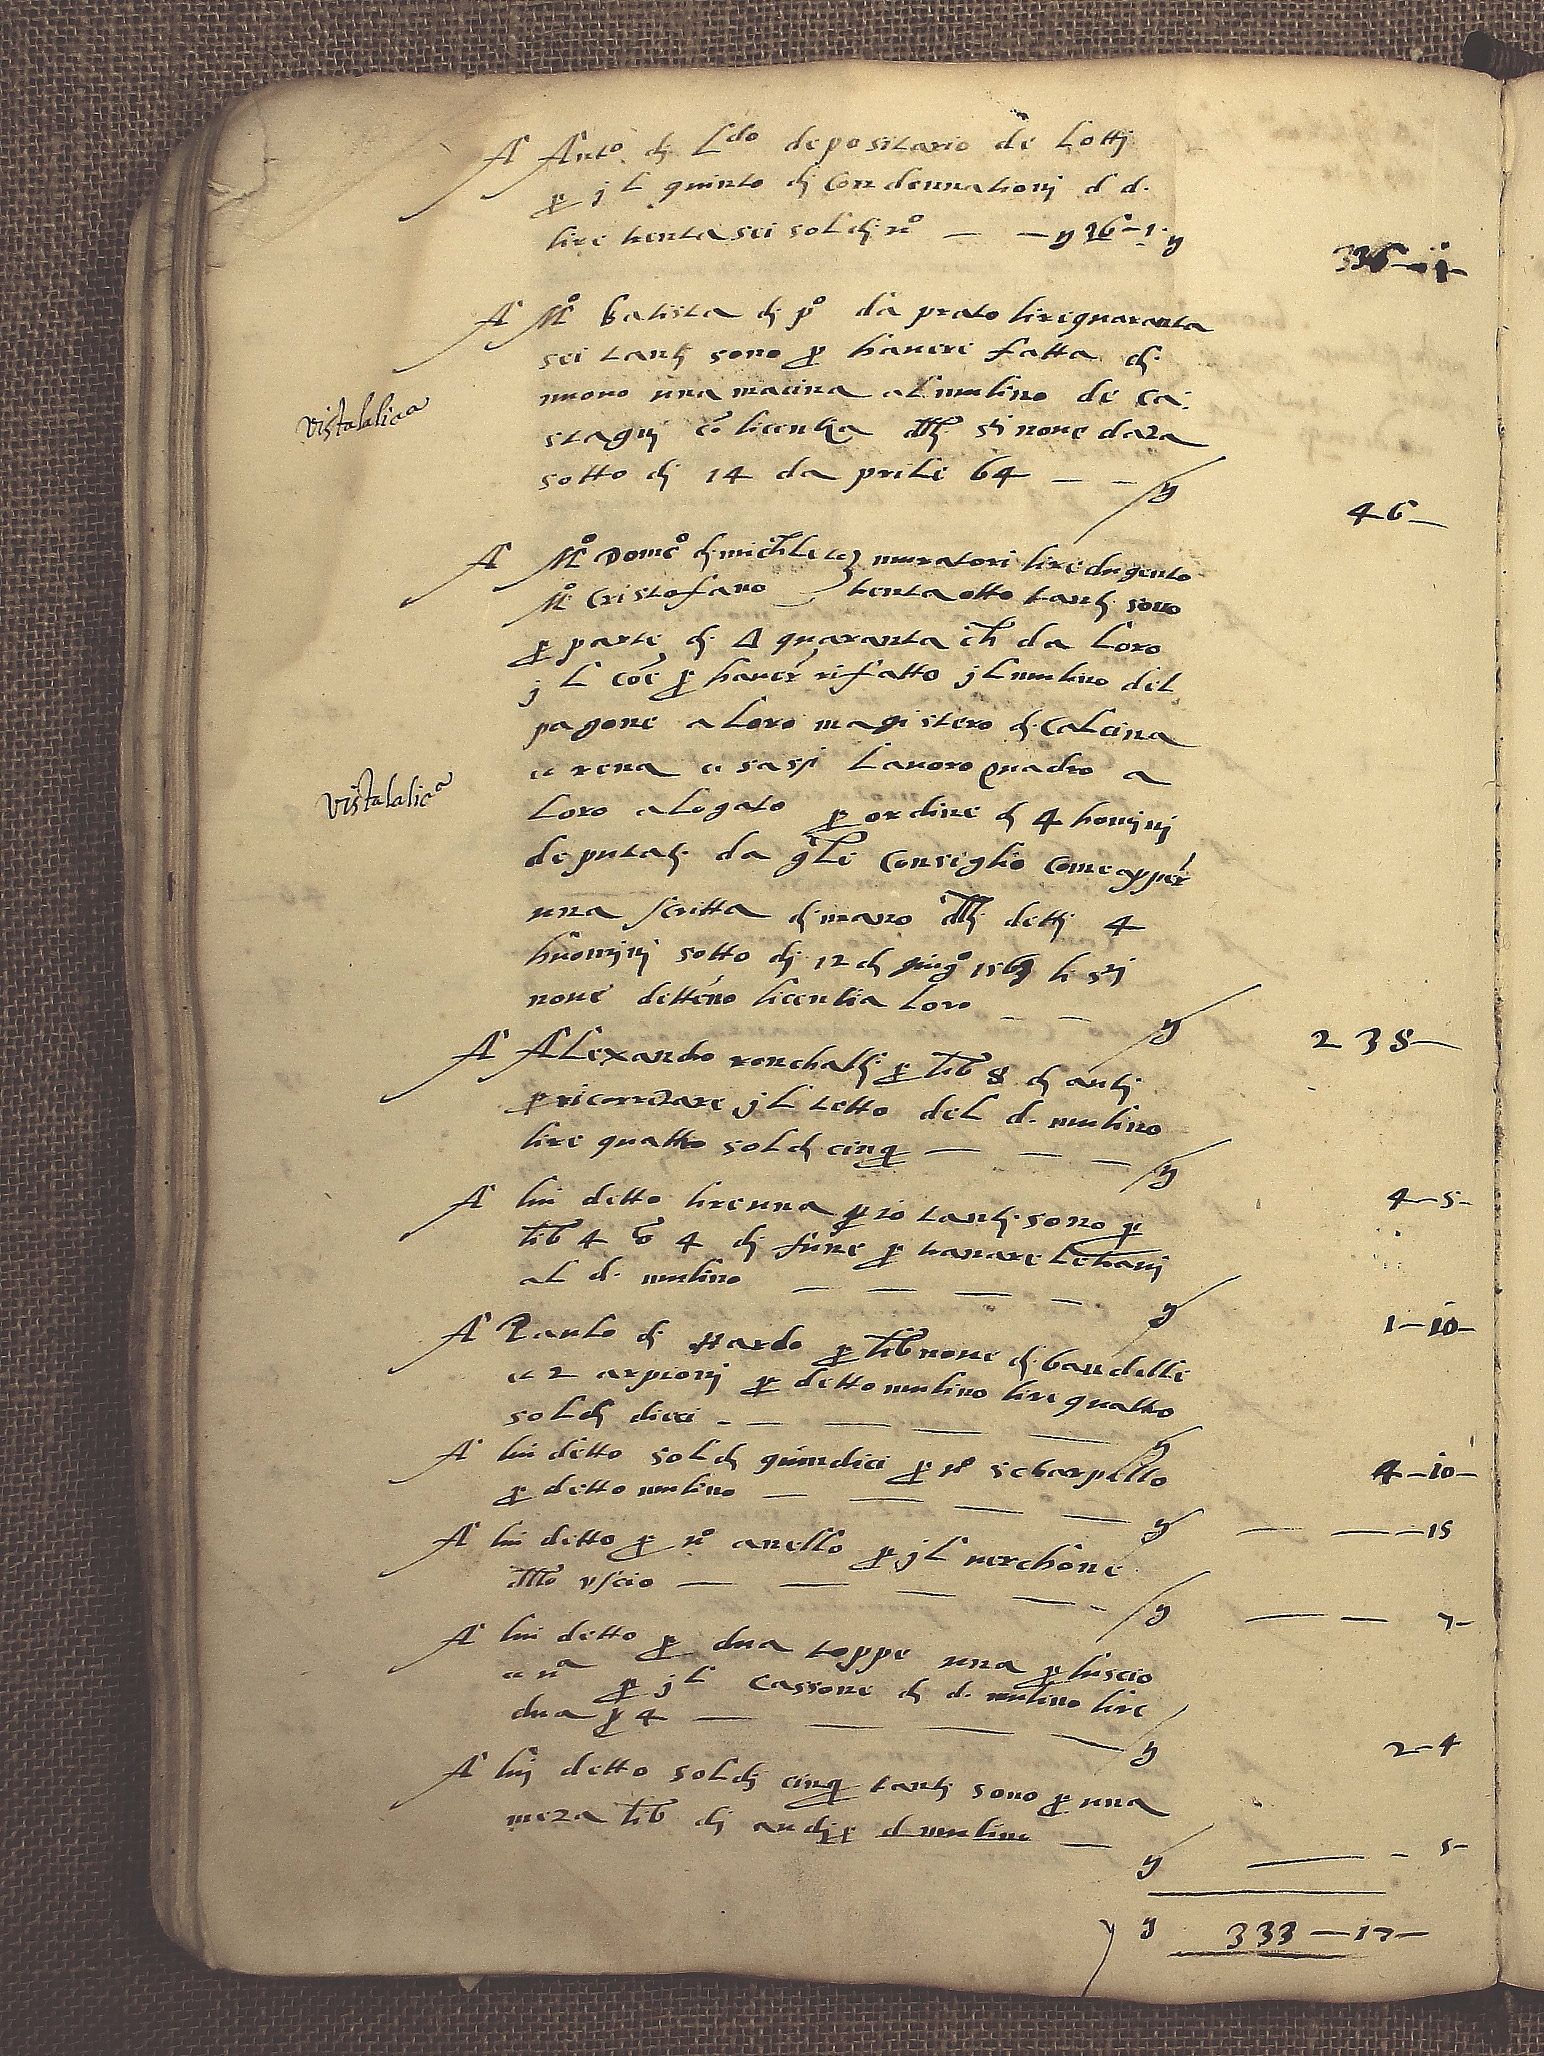 A Anto di Ldo depositario de Lotti
p jL quinto di Condennationj d d.
lire trenta sei soldi no — — 36-1-
336-1-
A Mo Batista di po da prato lire quaranta
sei tanti sono p havere fatta di
nuovo una macina al mulino de Ca:
stagni co licentia sri nove data
sotto di 14 da prile 64 — —
vistalalica
46-
A Mo Domco di michele muratori lire dugento
Mo Cristofano trenta otto tanti sono
p parte di quaranta ch da Loro
jL coe p haver rifatto jL mulino del
pagone a Loro magistero di Calcina
a rena a sassi Lavoro quadro a
vistalalica
Loro alogato p ordine di 4 homini
deputati da gLe Consiglio Come apper
una scritta di mano detti 4
huominj sotto di 12 di giugo li sri
nove detteno licentia Loro — —
238-
A ALexandro ronchatti p lib 8 di auti
p ricorretare jL tetto del d. mulino
lire quatro soldi cinq — — —
4-5-
A lui detto lire una p 10 tanti sono p
lib 4 4 di fune p
al d. mulino — — — —
1-10-
A Paulo di p lib nove di bandelle
a 2 arpionj p detto mulino lire quatro
soldi dieci — — — —
4-10-
A lui detto soldi quindici p uo scharpello
p detto mulino — — — — —
— — 15
A lui detto p uo anello p jL nerchione
uscio — — — —
— — 7-
A lui detto p dua toppe una p luscio
a ua p jL Cassone di d. mulino lire
dua p 4 — — — —
2-4
A lui detto soldi cinq tanti sono p una
meza lib di auti p d mulino —
— - 5-
333-17-